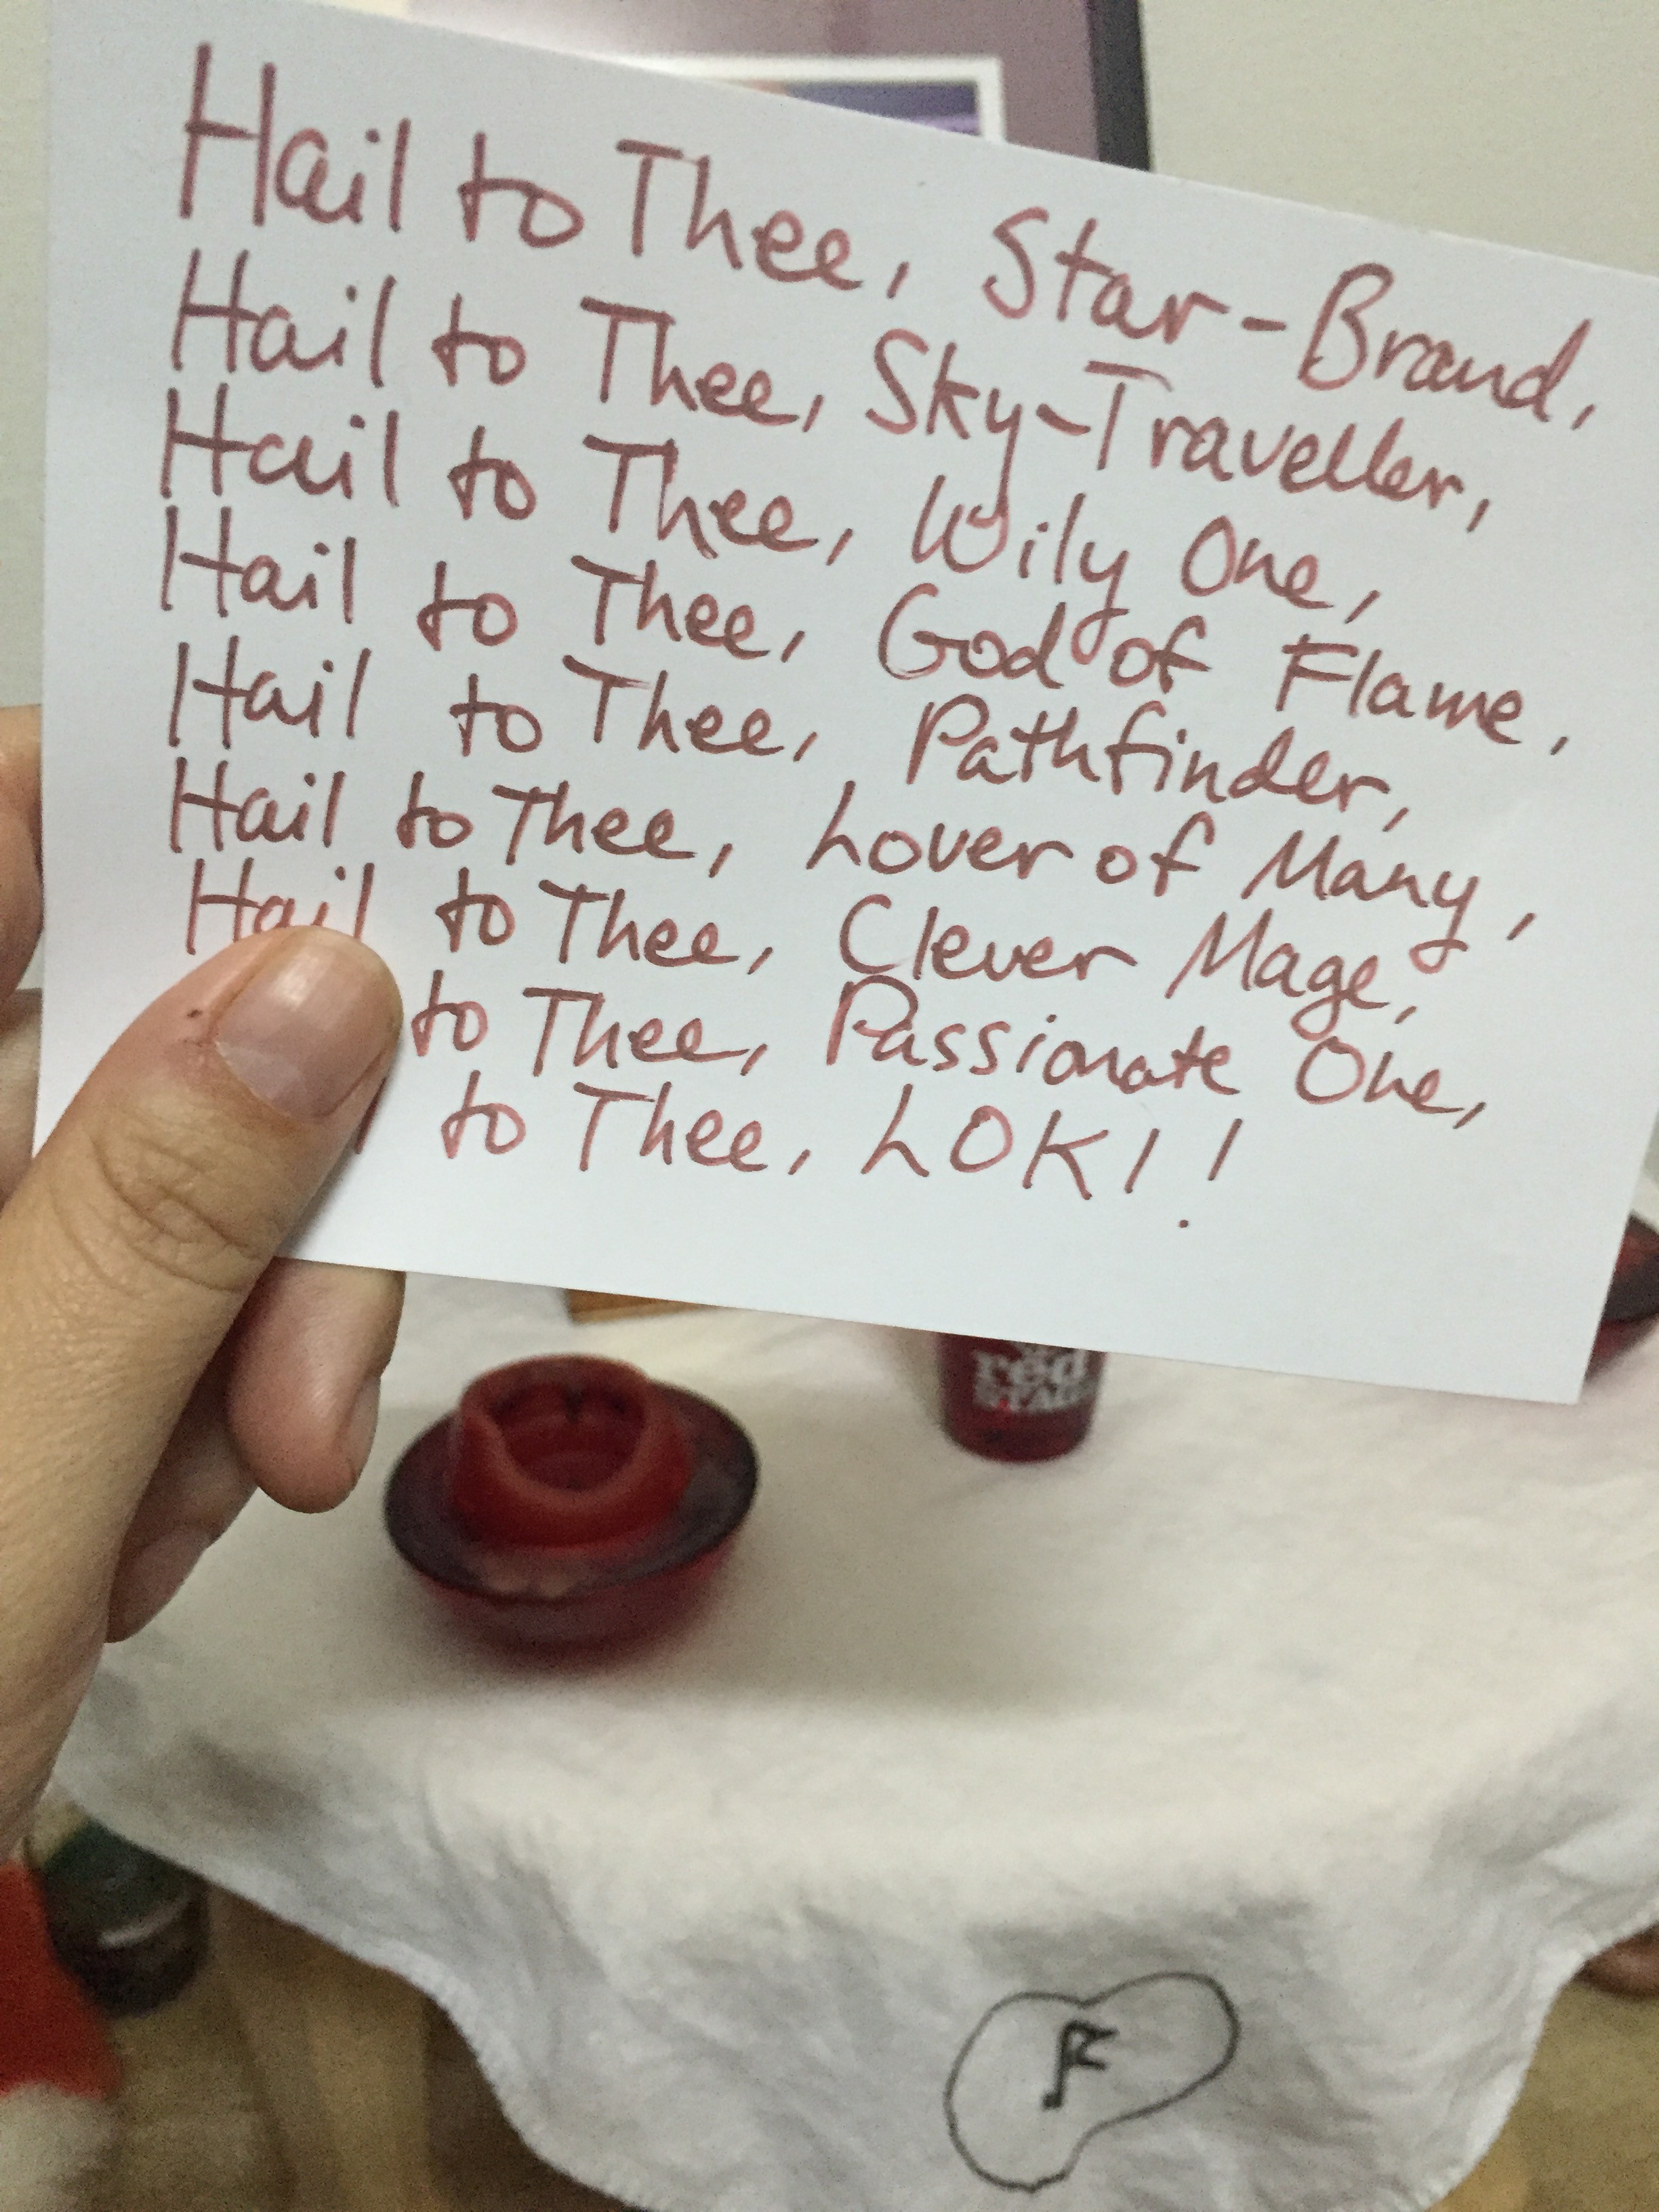 Hail to Thee, Star-Brand,
Hail to Thee, Sky-Traveller,
Hail to Thee, Wily One,
Hail to Thee, God of Flame,
Hail to Thee, Pathfinder,
Hail to Thee, Lover of Many,
Hail to Thee, Clever Mage,
to Thee, Passionate One,
to Thee, LOKI!
red
STAG